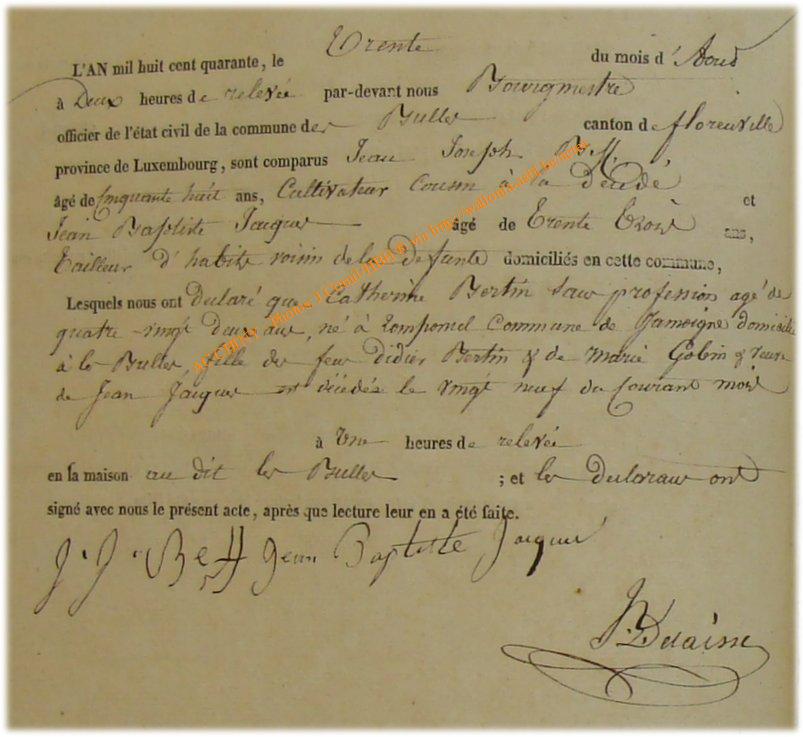 L'AN mil huit cent quarante, le Trente du mois d' Aout
à Deux heures de relevée par-devant nous Bourgmestre
officier de l'état civil de la commune des Bulles canton de florenville
province de Luxembourg, sont comparus Jean Joseph
âgé de Cinquante huit ans, Cultivateur Cousin à la
et
Jean Baptiste Jacques âgé de Trente trois ans,
Tailleur d' habits voisin de la defunte domiciliés en cette commune,
Lesquels nous ont declaré que Catherine Bertin sans profession agé de
quatre-vingt deux ans, né à Commune de Jamoigne domicilié
à les Bulles, fille des feus Didier Bertin & de Marie Gobin & veuve
de Jean Jacques est décédée le vingt neuf du Courant mois
à Une heures de relevée
en sa maison au dit les Bulles ; et les declarans ont
signé avec nous le présent acte, après que lecture leur en a été faite.
J. J. Jean Baptiste Jacques